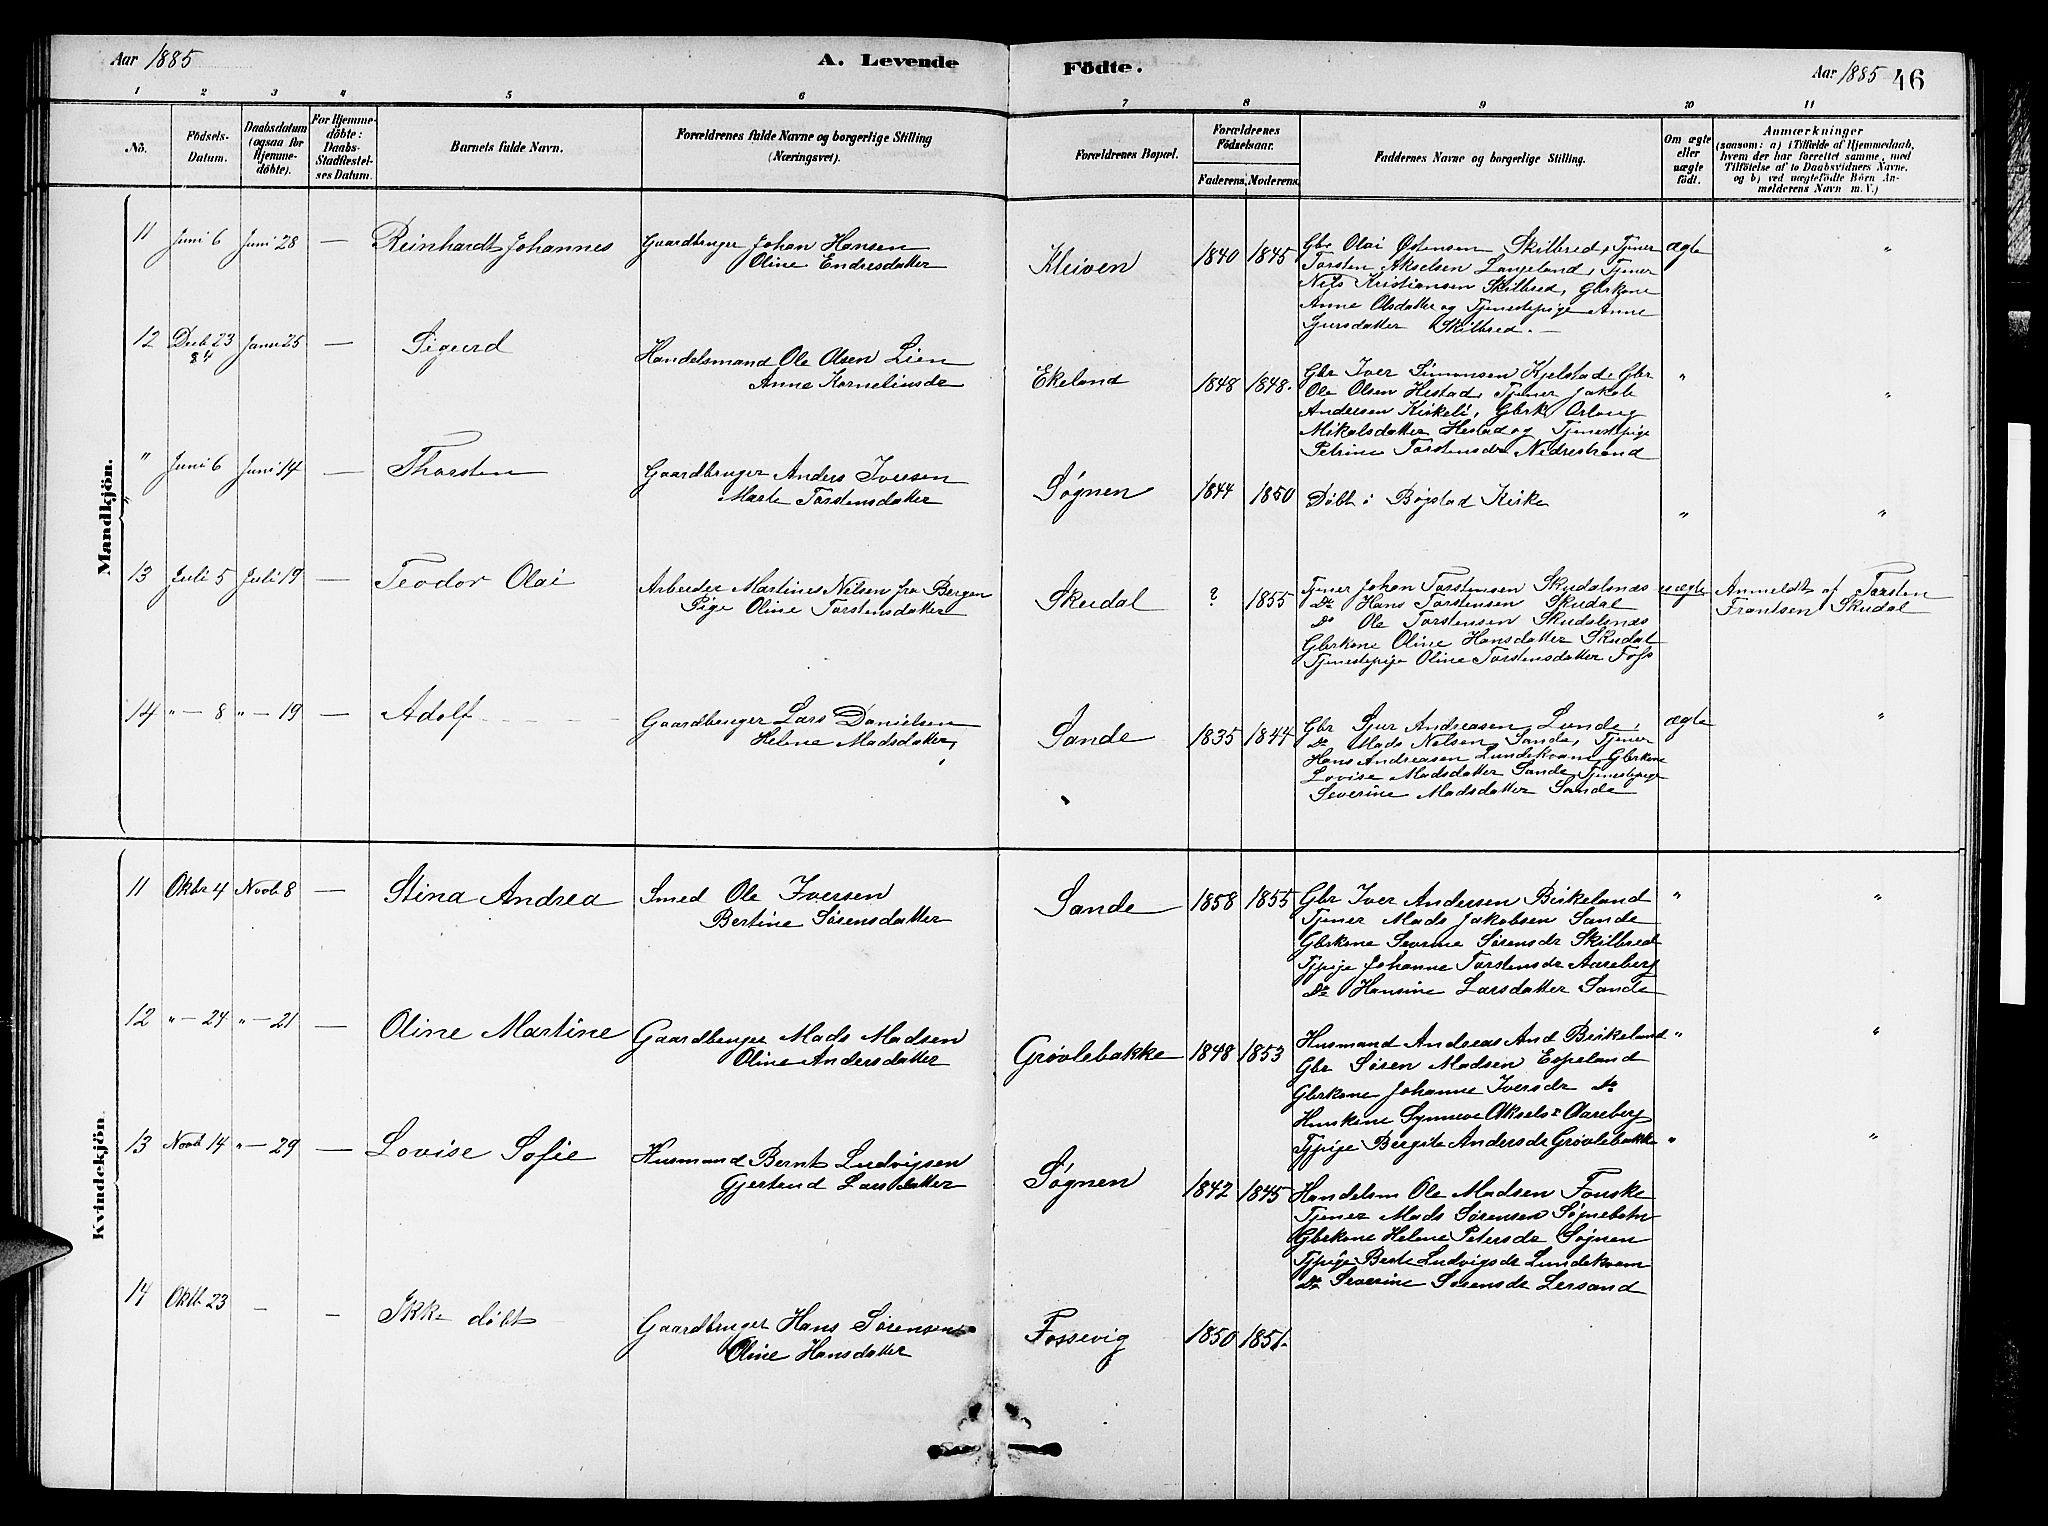 Aar 1885
A. Levende Födte.
Aar 1885 46
1 2 3 4 5 6 7 8 9 10 11
Nö.
Födsels-Datum.
Daabsdatum (ogsaa for Hjemme-döbte).
For Hjemme-döbte: Daabs-Stadfæstel-ses Datum.
Barnets fulde Navn.
Forældrenes fulde Navne og borgerlige Stilling (Næringsvei).
Forældrenes Bopæl.
Forældrenes Födselsaar.
Faderens. Moderens.
Faddernes Navne og borgerlige Stilling.
Om ægte eller uægte födt.
Anmærkninger
(saasom: a) i Tilfælde af Hjemmedaab, hvem der har forrettet samme, med Tilföielse af to Daabsvidners Navne, og b) ved uægtefödte Börn An-melderens Navn m. V.)
Mandkjön.
11 Juni 6 Juni 28 — Reinhardt Johannes
Gaardbruger Johan Hansen
Oline Endresdatter
Kleiven 1840 1845
Gbr Olai Østensen Skilbred, Tjener
Torsten Akselsen Langeland, Tjener
Nils Kristiansen Skilbred, Gbrkone
Anne Olsdatter og Tjenestepige Anne
Sjursdatter Skilbred. —
ægte "
12 Decb 23 84 Janu 25 — Sigurd
Handelsmand Ole Olsen Lien
Anne Korneliusdr
Ekeland 1848 1848.
Gbr Iver Simonsen Kjelstad, Gbr
Ole Olsen Hestad, Tjener Jakob
Andersen Kirkeli, Gbrk
Mikalsdatter Hestad og Tjenestepige
Petrine Torstensdr Nedrestrand
" "
" Juni 6 Juni 14 — Thorsten
Gaardbruger Anders Iversen
Marte Torstensdatter
Søgnen 1844 1850
Døbt i Bøjstad Kirke
" "
13 Juli 5 Juli 19 — Teodor Olai
Arbeider Martines Nilsen fra Bergen
Pige Oline Torstensdatter
Skudal ? 1855
Tjener Johan Torstensen Skudalsnæs
Do Hans Torstensen Skudal
Do Ole Torstensen Skudalsnæs
Gbrkone Oline Hansdatter Skudal
Tjenestepige Oline Torstensdatter Foss
uægte
Anmeldt af Torsten
Frantsen Skudal
14 " — 8 " — 19 — Adolf
Gaardbruger Lars Danielsen
Helene Madsdatter,
Sande 1835 1844
Gbr Sjur Andreasen Lunde,
Do Mads Nelsen Sande, Tjener
Hans Andreasen Lundekvam, Gbrkone
Lovise Madsdatter Sande, Tjenestepige
Severine Madsdatter Sande
ægte "
Kvindekjön
11 Oktbr 4 Novb 8 — Stina Andrea
Smed Ole Iversen
Bertine Sørensdatter
Sande 1858 1855
Gbr Iver Andersen Birkeland
Tjener Mads Jakobsen Sande
Gbrkone Severine Sørensdr Skilbred
Tjpige Johanne Torstensdr Aareberg
Do Hansine Larsdatter Sande
" "
12 " — 24 " — 21 — Oline Martine
Gaardbruger Mads Madsen
Oline Andersdatter
Grøvlebakke 1848 1853
Husmand Andreas And Birkeland
Gbr Søren Madsen Espeland
Gbrkone Johanne Iversdr do
Huskone Synneve Akselsr Aareberg
Tjpige Bergite Andersdr Grøvlebakke
" "
13 Novb 14 " — 29 — Lovise Sofie
Husmand Bernt Ludvigsen
Gjertrud Larsdatter
Søgnen 1842 1845
Handelsm Ole Madsen Fauske
Tjener Mads Sørensen Søgnebotn
Gbrkone Helene Petersdr Søgnen
Tjpige Berte Ludvigsdr Lundekvam
Do Severine Sørensdr Lersand
" "
14 Oktb 23 — — Ikke døbt
Gaardbruger Hans Sørensen
Oline Hansdatter
Fossevig 1850 1851.